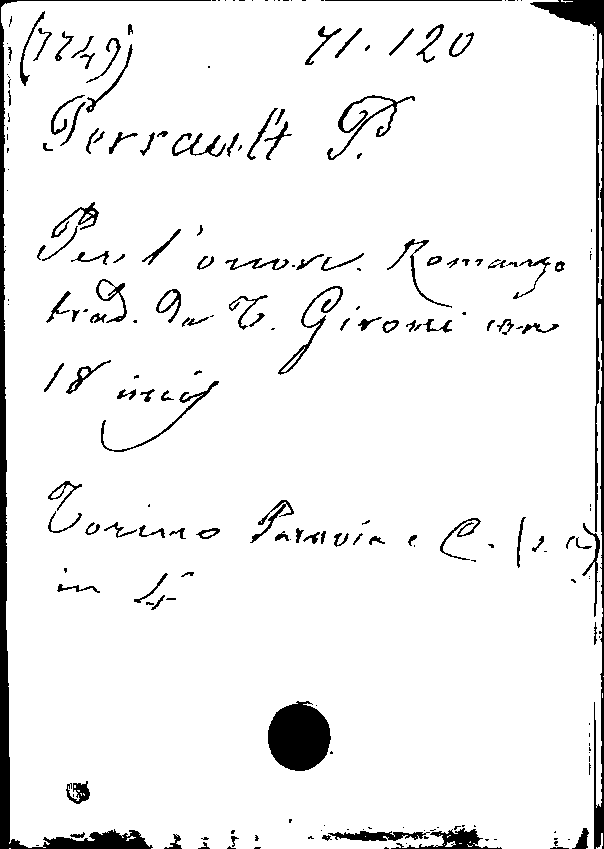 (7749) 71.120
Perrault P.
Per l'onore. Romanzo
trad. da T. Gironi con
18 incis
Torino Paravia e C. (s. a.)
in 4°